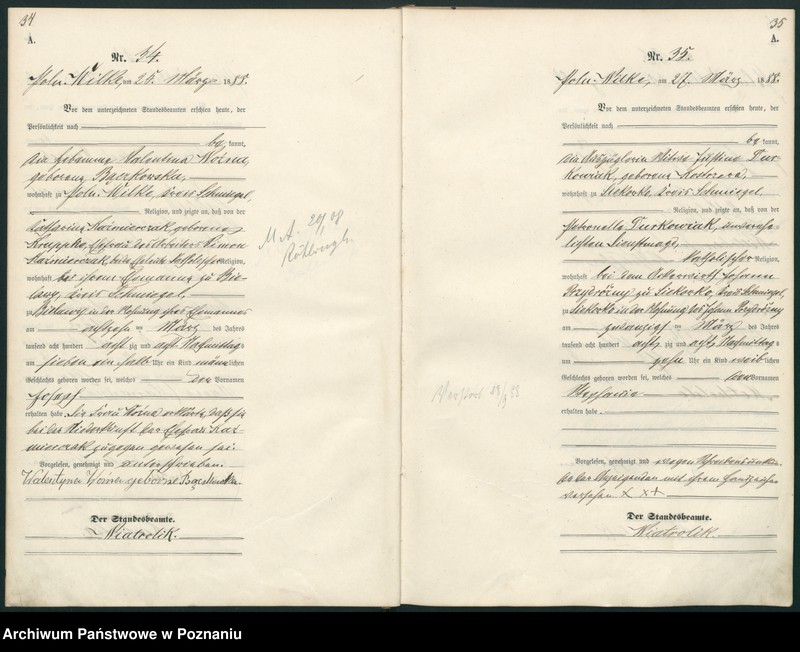 34
A.
Nr. 34.
Poln. Wilke, am 25. März 1888.
Vor dem unterzeichneten Standesbeamten erschien heute, der
Persönlichkeit nach
be kannt,
die Hebamme Valentina Woźna,
geborene Bączkowska,
wohnhaft zu Poln. Wilke, Kreis Schmiegel,
Religion, und zeigte an, daß von der
Catharina Kaźmierczak, geborene
Ehefrau des Arbeiters Simon
Kaźmierczak, beide Religion,
wohnhaft bei ihrem Ehemanne zu
Kreis Schmiegel,
zu in der Wohnung ihres Ehemannes
am März des Jahres
tausend acht hundert acht zig und acht Nachmittags
um sieben ein halb Uhr ein Kind männ lichen
Geschlechts geboren worden sei, welches den Vornamen
Josef
erhalten habe. Die Frau Woźna erklärte, daß sie
bei der Niederkunft der Ehefrau Kaź-
mierczak zugegen gewesen sei.
Vorgelesen, genehmigt und unterschrieben.
Walentyna Woźna geborne Bączkowska
Der Standesbeamte.
Wiatrolik.
M. A. 20/1 08
35
A.
Nr. 35.
Poln. Wilke, am 27. März 1888.
Vor dem unterzeichneten Standesbeamten erschien heute, der
Persönlichkeit nach
be kannt,
die Wittwe Justine Tur-
kowiak, geborene
wohnhaft zu Siekowko, Kreis Schmiegel,
Religion, und zeigte an, daß von der
Petronella Turkowiak, unverehe-
lichten Dienstmagd,
katholischer Religion,
wohnhaft bei dem Johann
Przydrożny zu Siekowko, Kreis Schmiegel,
zu Siekowko in der Wohnung des Johann Przydrożny
am März des Jahres
tausend acht hundert acht zig und acht Nachmittags
um zehn Uhr ein Kind weib lichen
Geschlechts geboren worden sei, welches den Vornamen
Stephania
erhalten habe.
Vorgelesen, genehmigt und wegen Schreibensunkun-
de der Anzeigenden mit ihrem Handzeichen
versehen X X +
Der Standesbeamte.
Wiatrolik.
Archiwum Państwowe w Poznaniu